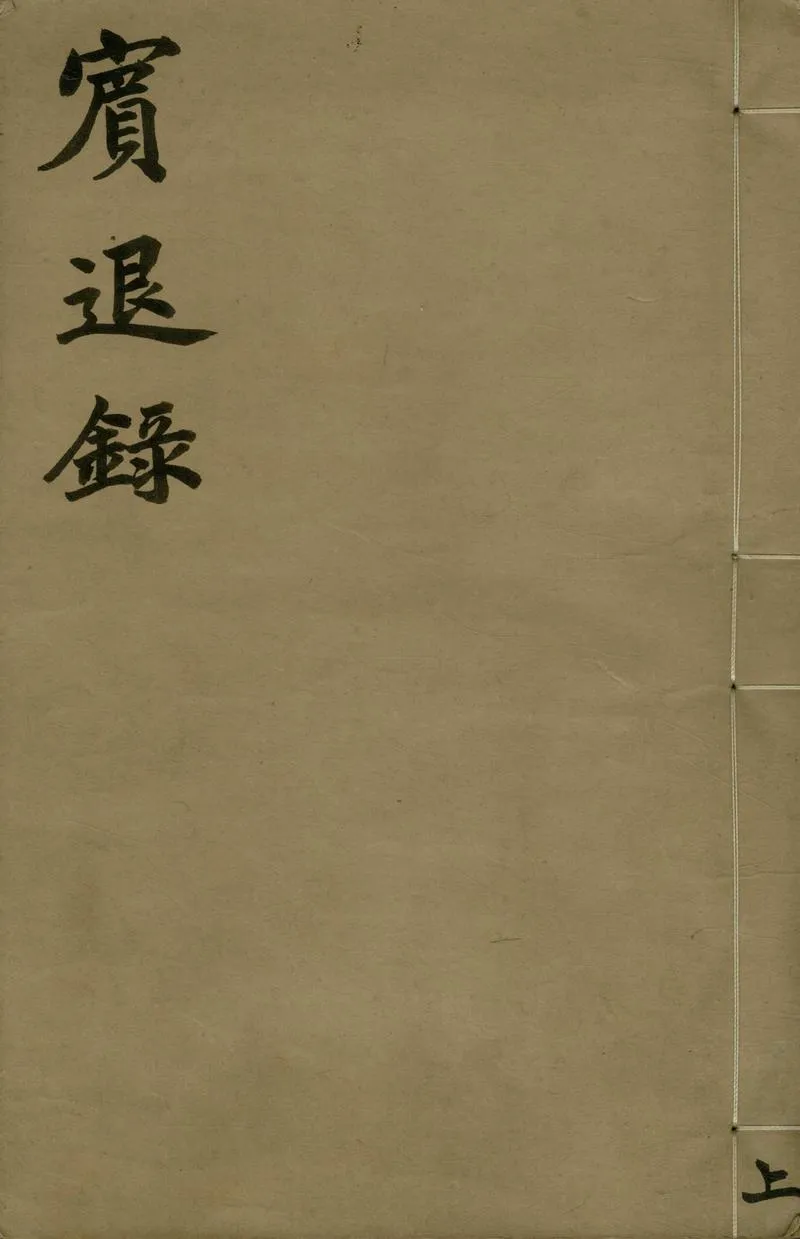 賓退錄
上